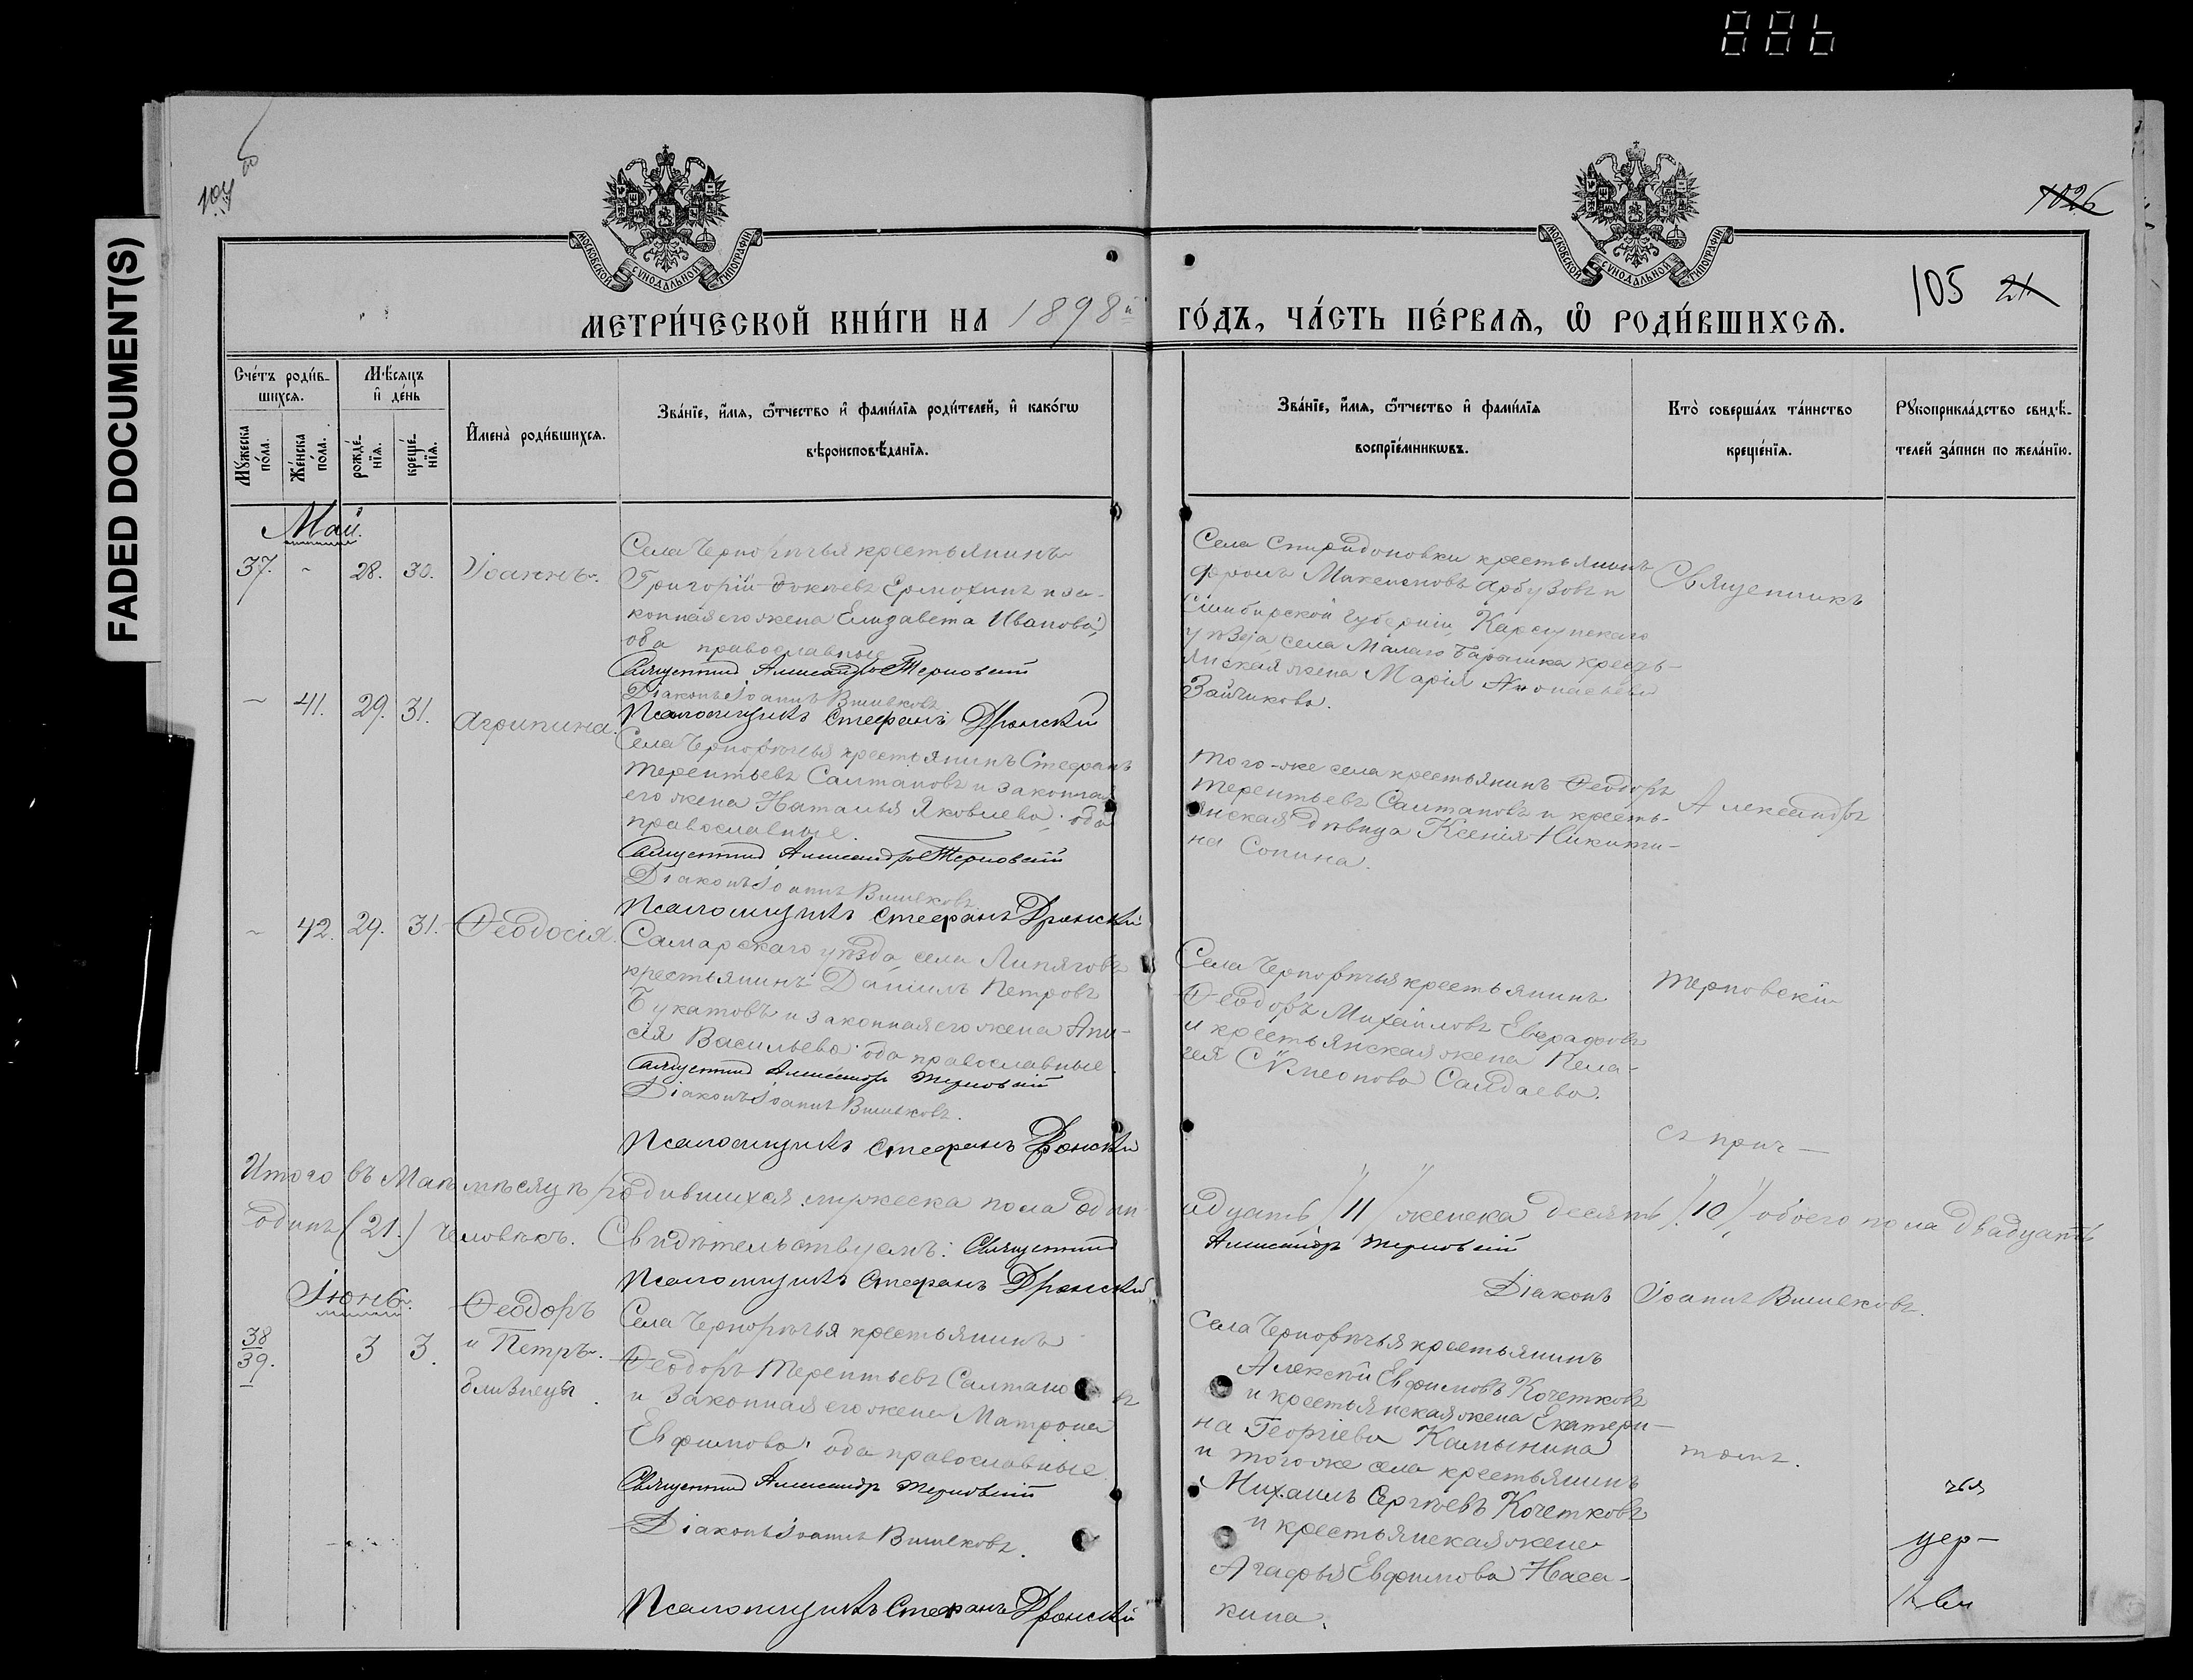 FADED DOCUMENT(S)
886
104
1026
МОСКОВСКОЙ СѴНОДАЛЬНОЙ ТИПОГРАФІИ
МОСКОВСКОЙ СѴНОДАЛЬНОЙ ТИПОГРАФІИ
105 21
МЕТРИ́ЧЕСКОЙ КНИ́ГИ НА 1898й ГО́ДЪ, ЧА́СТЬ ПЕ́РВАѦ, Ѡ҆ РОДИ́ВШИХСѦ.
Сче́тъ роди́в-
шихсѧ.
Мꙋ́жеска по́ла.
Же́нска по́ла.
Мѣ́сѧцъ и҆ де́нь
рожде́-нїѧ.
креще́-нїѧ.
И҆мена̀ роди́вшихсѧ.
Зва́нїе, и҆́мѧ, ѻ҆́тчество и҆ фами́лїѧ роди́телей, и҆ како́гѡ
вѣроисповѣ́данїѧ.
Зва́нїе, и҆́мѧ, ѻ҆́тчество и҆ фами́лїѧ
воспрїе́мникѡвъ.
Кто̀ соверша́лъ та́инство
креще́нїѧ.
Рꙋкоприкла́дство свидѣ́-
телей за́писи по жела́нїю.
Май.
37. - 28. 30. Іоаннъ.
Села Чернорѣчья крестьянинъ
Григорій Фокеевъ Ермохинъ и за-
конная его жена Елизавета Иванова,
оба православные
Священникъ Александръ Терновскій
Діаконъ Іоаннъ Вишевковъ
Псаломщикъ Стефанъ Дронскій
Села Спиридоновки крестьянинъ
Максимовъ Арбузовъ и
Симбирской губерніи Карсунскаго
уѣзда села Малаго Барышка кресть-
янская жена Марія Аѳонасьева
Зайчикова.
Священникъ
- 41. 29. 31. Агрипина.
Села Чернорѣчья крестьянинъ Стефанъ
Терентьевъ Салтановъ и законная
его жена Наталья Яковлева, оба
православные.
Священникъ Александръ Терновскій
Діаконъ Іоаннъ Вишевковъ
Псаломщикъ Стефанъ Дронскій
Того-же села крестьянинъ Ѳеодоръ
Терентьевъ Салтановъ и кресть-
янская дѣвица Ксенія Никити-
на Сопина.
Александръ
- 42. 29. 31. Ѳеодосія.
Самарскаго уѣзда села Липяговъ
крестьянинъ Даніилъ Петровъ
Букатовъ и законная его жена Ани-
сія Васильева, оба православные
Священникъ Александръ Терновскій
Діаконъ Іоаннъ Вишевковъ.
Псаломщикъ Стефанъ Дронскій
Села Чернорѣчья крестьянинъ
Ѳеодоръ Михайловъ Евграфовъ
и крестьянская жена Пела-
гея Сѵмеонова Салдаева.
Терновскій
съ прич-
Итого въ Маѣ мѣсяцѣ родившихся мужеска пола один-
надцать /11/ женска десять /10/ обоего пола двадцать
одинъ (21.) человѣкъ. Свидѣтельствуемъ: Священникъ Александръ Терновскій
Псаломщикъ Стефанъ Дронскій
Діаконъ Іоаннъ Вишевковъ.
Іюнь.
38
39. 3 3. Ѳеодоръ
и Петръ.
близнецы.
Села Чернорѣчья крестьянинъ
Ѳеодоръ Терентьевъ Салтановъ
и законная его жена Матрона
Евфимова, оба православные
Священникъ Александръ Терновскій
Діаконъ Іоаннъ Вишевковъ.
Псаломщикъ Стефанъ Дронскій
Села Чернорѣчья крестьянинъ
Алексѣй Евфимовъ Кочетковъ
и крестьянская жена Екатери-
на Георгіева Камынина
и того же села крестьянинъ
Михаилъ Сергѣевъ Кочетковъ
и крестьянская жена
Агафья Евфимова Наса-
кина.
томъ.
чья
цер-
кви